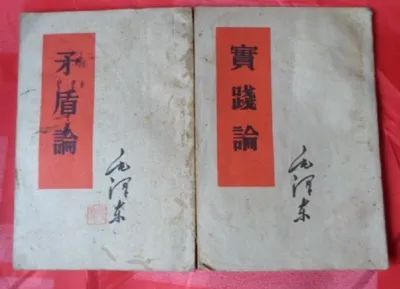 矛盾論
毛澤东
實踐論
毛澤东